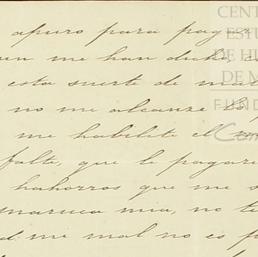 apuro para pagar
en me han dicho
esta suerte de mal
no me alcanze
me habilite el
falte, que le pagarè
hahorros que me s
maruca mia, no te
d me mal no es p
CENT
EST
DE HI
DE M
FUND